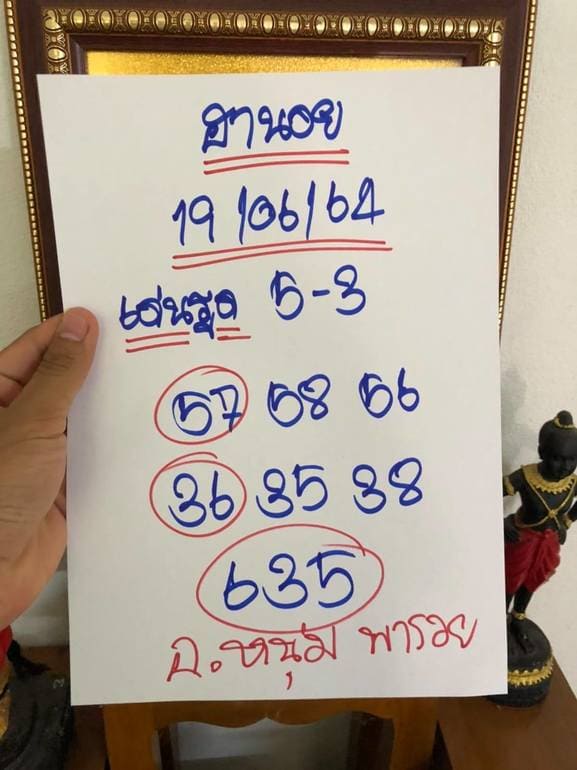 ฮานอย
19/06/64
เด่นรูด 5-3
57 58 56
36 35 38
635
อ.หนุ่ม พารวย